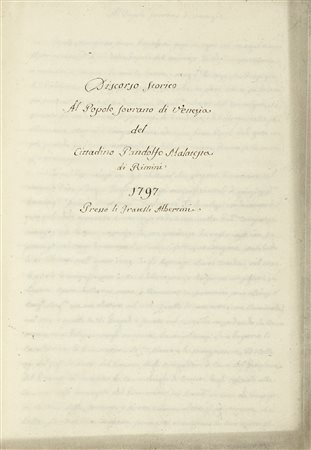 Discorso storico
Al Popolo sovrano di Venezia
del
Cittadino Pandolfo Malatesta
di Rimini
1797
Presso li Fratelli Albertini